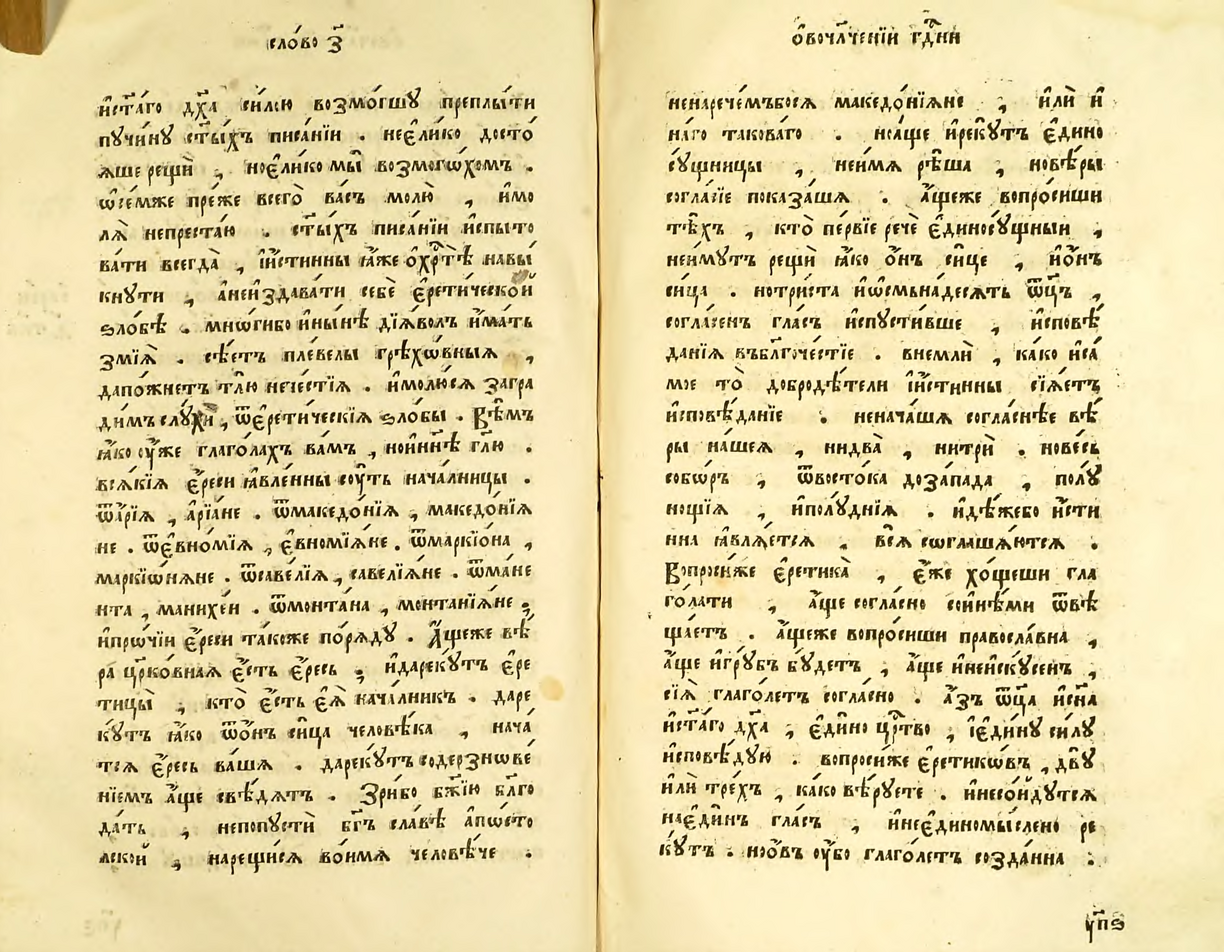 сло́во з҃
и҆ст҃а́го дх҃а си́лою возмо́гшꙋ преплы́ти
пꙋчи́нꙋ ст҃ы́хъ писа́нїи . неє҆ли́ко досто́
ѧше рещѝ , ноє҆ли́ко мы̀ возмого́хомъ .
ѡ҆се́мже пре́же всего̀ ва́съ молю̀ , и҆мо
лѧ̀ непреста́ю . ст҃ы́хъ писа́нїи и҆спыто
ва́ти всегда̀ , і҆и҆́стинны ꙗ҆́же ѡ҆хр҇тѣ̀ навы́
кнꙋти , а҆неи҆здава́ти себѐ є҆рети́ческой
ѕло́бѣ . мно́гибо и҆ны́нѣ дїѧ́волъ и҆́мать
змїѧ̀ . сѣ́етъ пле́велы грѣхо́вныѧ ,
дапо́жнетъ тлю̀ нече́стїѧ . и҆молю́сѧ загра
ди́мъ слꙋ́хи , ѿє҆рети́ческїѧ ѕло́бы . Вѣ́мъ
ꙗ҆́ко ᲂу҆́же глаго́лахъ ва́мъ , нои҆ны́нѣ гл҃ю .
всѧ́кїѧ є҆́реси ꙗ҆вле́нны сꙋ́ть нача́лницы .
ѿа҆́рїѧ , а҆рїа́не . ѿмакедо́нїѧ , македо́нїѧ
не . ѿє҆вно́мїѧ , є҆вномїѧ́не . ѿмаркїо́на ,
маркїѡ́нѧне . ѿсаве́лїѧ , савелїѧ́не . ѿмане
нта , манихе́и . ѿмонта́на , монтанїѧ́не ;
и҆про́чїи є҆́реси та́коже по́рѧдꙋ . А҆́щеже вѣ́
ра цр҃ко́внаѧ є҆́сть є҆́ресь ; и҆дареку́тъ є҆ре
тицы̀ , кто̀ є҆́сть є҆ѧ̀ нача́лникъ . даре
кꙋ́тъ ꙗ҆́ко ѿо҆́нъ си́ца человѣ́ка , нача́
тсѧ є҆́ресь ва́ша . дарекꙋ́тъ содерзнове́
нїемъ а҆́ще свѣ́дѧтъ . Зри́бо бж҃їю бл҃го
да́ть , непопустѝ бг҃ъ сла́вѣ а҆по́сто
лской , нарещи́сѧ во́имѧ человѣ́че .
ѻ҆вочл҃че́нїи гд҇ни
ненарече́мъбосѧ македо́нїѧне , и҆лѝ и҆
на́го такова́го . на́ще и҆рекꙋ́тъ є҆дино
сꙋ́щницы , неи҆́мѧ рѣ́ша , новѣ́ры
согла́сїе показа́ша . а҆́щеже вопро́сиши
тѣ́хъ , кто̀ пе́рвїе речѐ є҆диносꙋ́щныи ,
неи҆́мꙋтъ рещѝ ꙗ҆́ко о҆́нъ си́це , и҆о҆́нъ
си́ца . нотри́ста и҆ѻ҆смьна́десѧть ѻ҆ц҃ъ ,
согла́сенъ гла́съ и҆спꙋсти́вше , и҆сповѣ́
да́нїѧ въбл҃гоче́стїе . внемлѝ , ка́ко и҆са
мое то̀ добродѣ́тели і҆и҆́стинны сїѧ́етъ
и҆сповѣ́данїе . неначаша согла́снѣе вѣ́
ры на́шеѧ , нидва̀ , нитрѝ . нове́сь
собо́ръ , ѿвосто́ка доза́пада , полꙋ́
нощїѧ , и҆полꙋ́днїѧ . и҆дѣ́жебо и҆́сти
нна ꙗ҆влѧ́етсѧ , всѧ̀ соглаша́ютсѧ .
Вопроси́же є҆ретика̀ , є҆́же хо́щеши гла
го́лати , а҆́ще согла́сно сои҆нѣ́ми ѿвѣ
ща́етъ . а҆́щеже вопро́сиши правосла́вна ,
а҆́ще и҆грꙋ́бъ бꙋ́детъ , а҆́ще и҆неи҆скꙋ́сенъ ,
сїѧ̀ глаго́летъ согла́сно . а҆́зъ ѻ҆ц҃а и҆сн҃а
и҆ст҃а́го дх҃а , є҆ди́но цр҇тво , і҆є҆ди́нꙋ си́лꙋ
и҆сповѣ́дꙋю . вопроси́же є҆ретико́въ , двꙋ̀
и҆лѝ тре́хъ , ка́ко вѣ́рꙋете . и҆несо́йдꙋтсѧ
нае҆ди́нъ гла́съ , и҆нее҆диномы́слено ре
кꙋ́тъ . но́овъ ᲂу҆́бо глаго́летъ созда́нна .
у҃пѕ